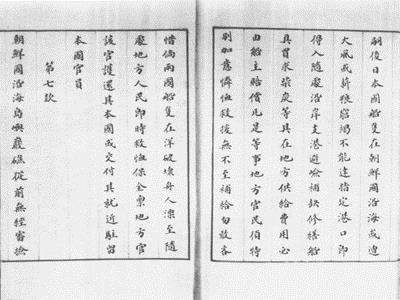 嗣後日本國船隻在朝鮮國沿海或遭
大風或薪粮窮竭不能達指定港口即
得入隨處沿岸支港避險補缺修繕船
具買求柴炭等其在地方供給費用必
由船主賠償凡是等事地方官民須特
別加意憐恤救援無不至補給勿敢吝
惜倘兩國船隻在洋破壞舟人漂至隨
處地方人民即時救恤保全稟地方官
該官護還其本國或交付其就近駐留
本國官員
第七款
朝鮮國沿海島嶼巖礁從前無經審撿